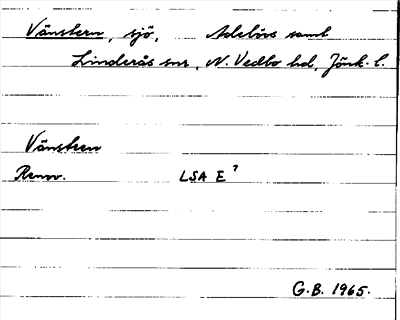 Vänstern, sjö, Adelövs samt
Linderås snr, N. Vedbo hd, Jönk. l.
Vänstren
Renov. LSA E 7
G.B. 1965.